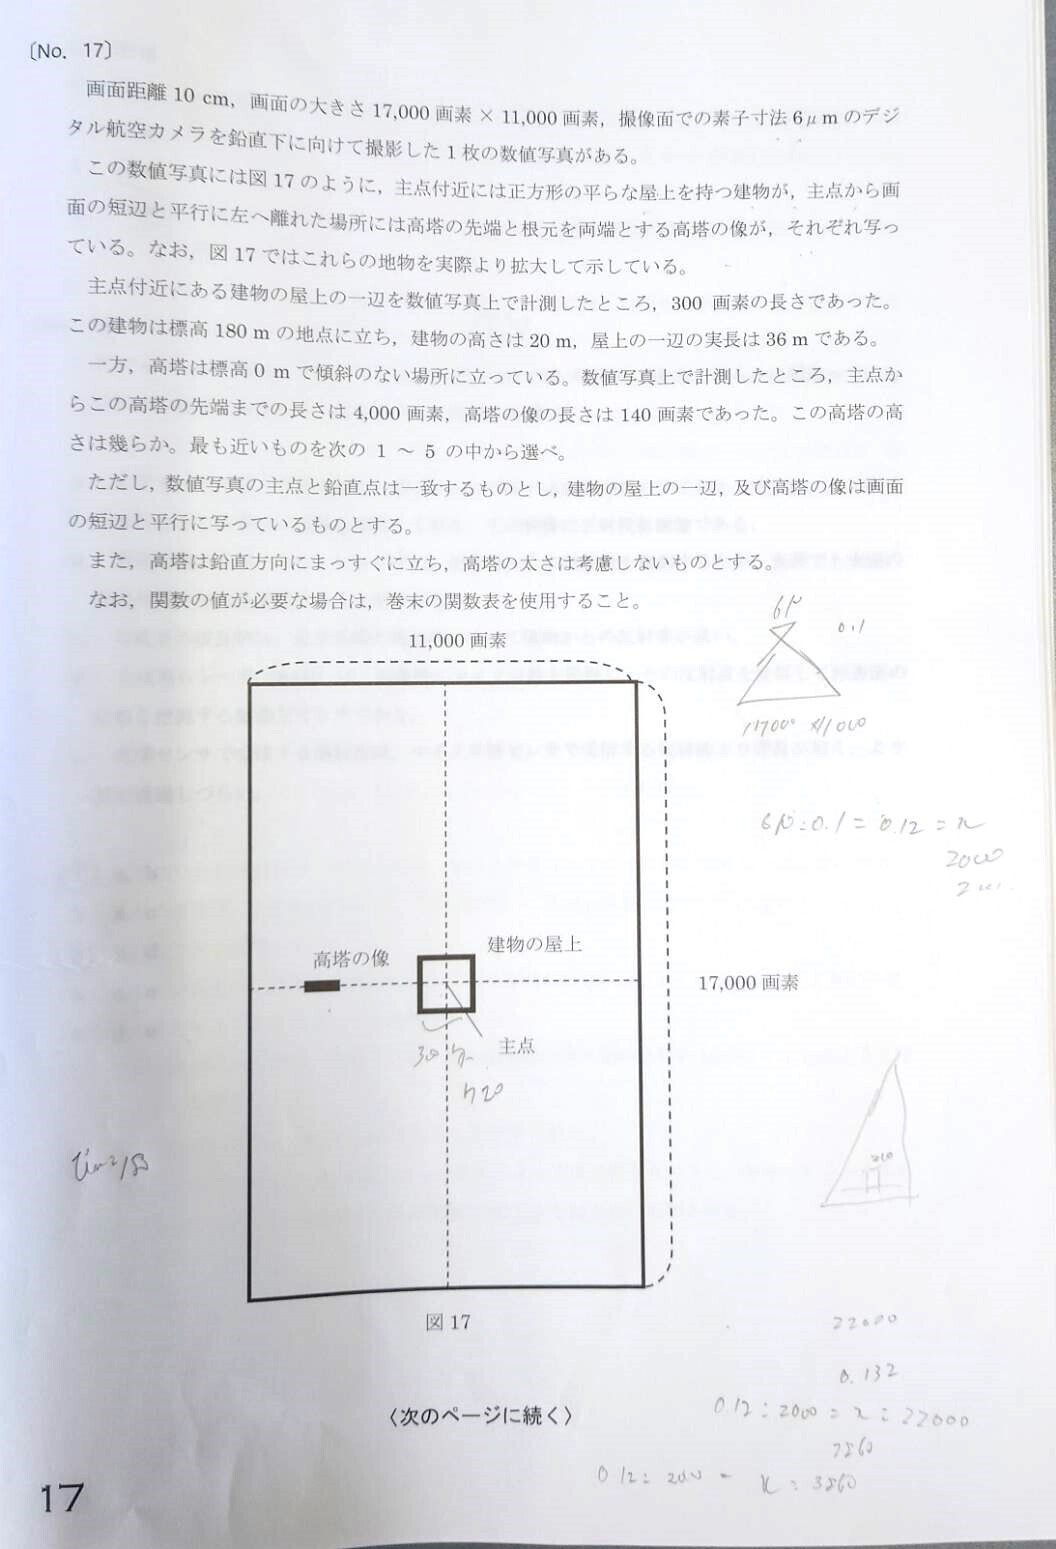 〔No. 17〕
画面距離 10 cm，画面の大きさ 17,000 画素 × 11,000 画素，撮像面での素子寸法 6μm のデジ
タル航空カメラを鉛直下に向けて撮影した 1 枚の数値写真がある。
この数値写真には図 17 のように，主点付近には正方形の平らな屋上を持つ建物が，主点から画
面の短辺と平行に左へ離れた場所には高塔の先端と根元を両端とする高塔の像が，それぞれ写っ
ている。なお，図 17 ではこれらの地物を実際より拡大して示している。
主点付近にある建物の屋上の一辺を数値写真上で計測したところ，300 画素の長さであった。
この建物は標高 180 m の地点に立ち，建物の高さは 20 m，屋上の一辺の実長は 36 m である。
一方，高塔は標高 0 m で傾斜のない場所に立っている。数値写真上で計測したところ，主点か
らこの高塔の先端までの長さは 4,000 画素，高塔の像の長さは 140 画素であった。この高塔の高
さは幾らか。最も近いものを次の 1 ～ 5 の中から選べ。
ただし，数値写真の主点と鉛直点は一致するものとし，建物の屋上の一辺，及び高塔の像は画面
の短辺と平行に写っているものとする。
また，高塔は鉛直方向にまっすぐに立ち，高塔の太さは考慮しないものとする。
なお，関数の値が必要な場合は，巻末の関数表を使用すること。
6μ
0.1
11,000 画素
17000 × 11000
6μ : 0.1 = 0.12 = x
2000
建物の屋上
高塔の像
17,000 画素
主点
720
200
図 17
22000
0.132
〈次のページに続く〉
0.12 : 2000 = x : 22000
3860
0.12 : 200 = x : 3860
17